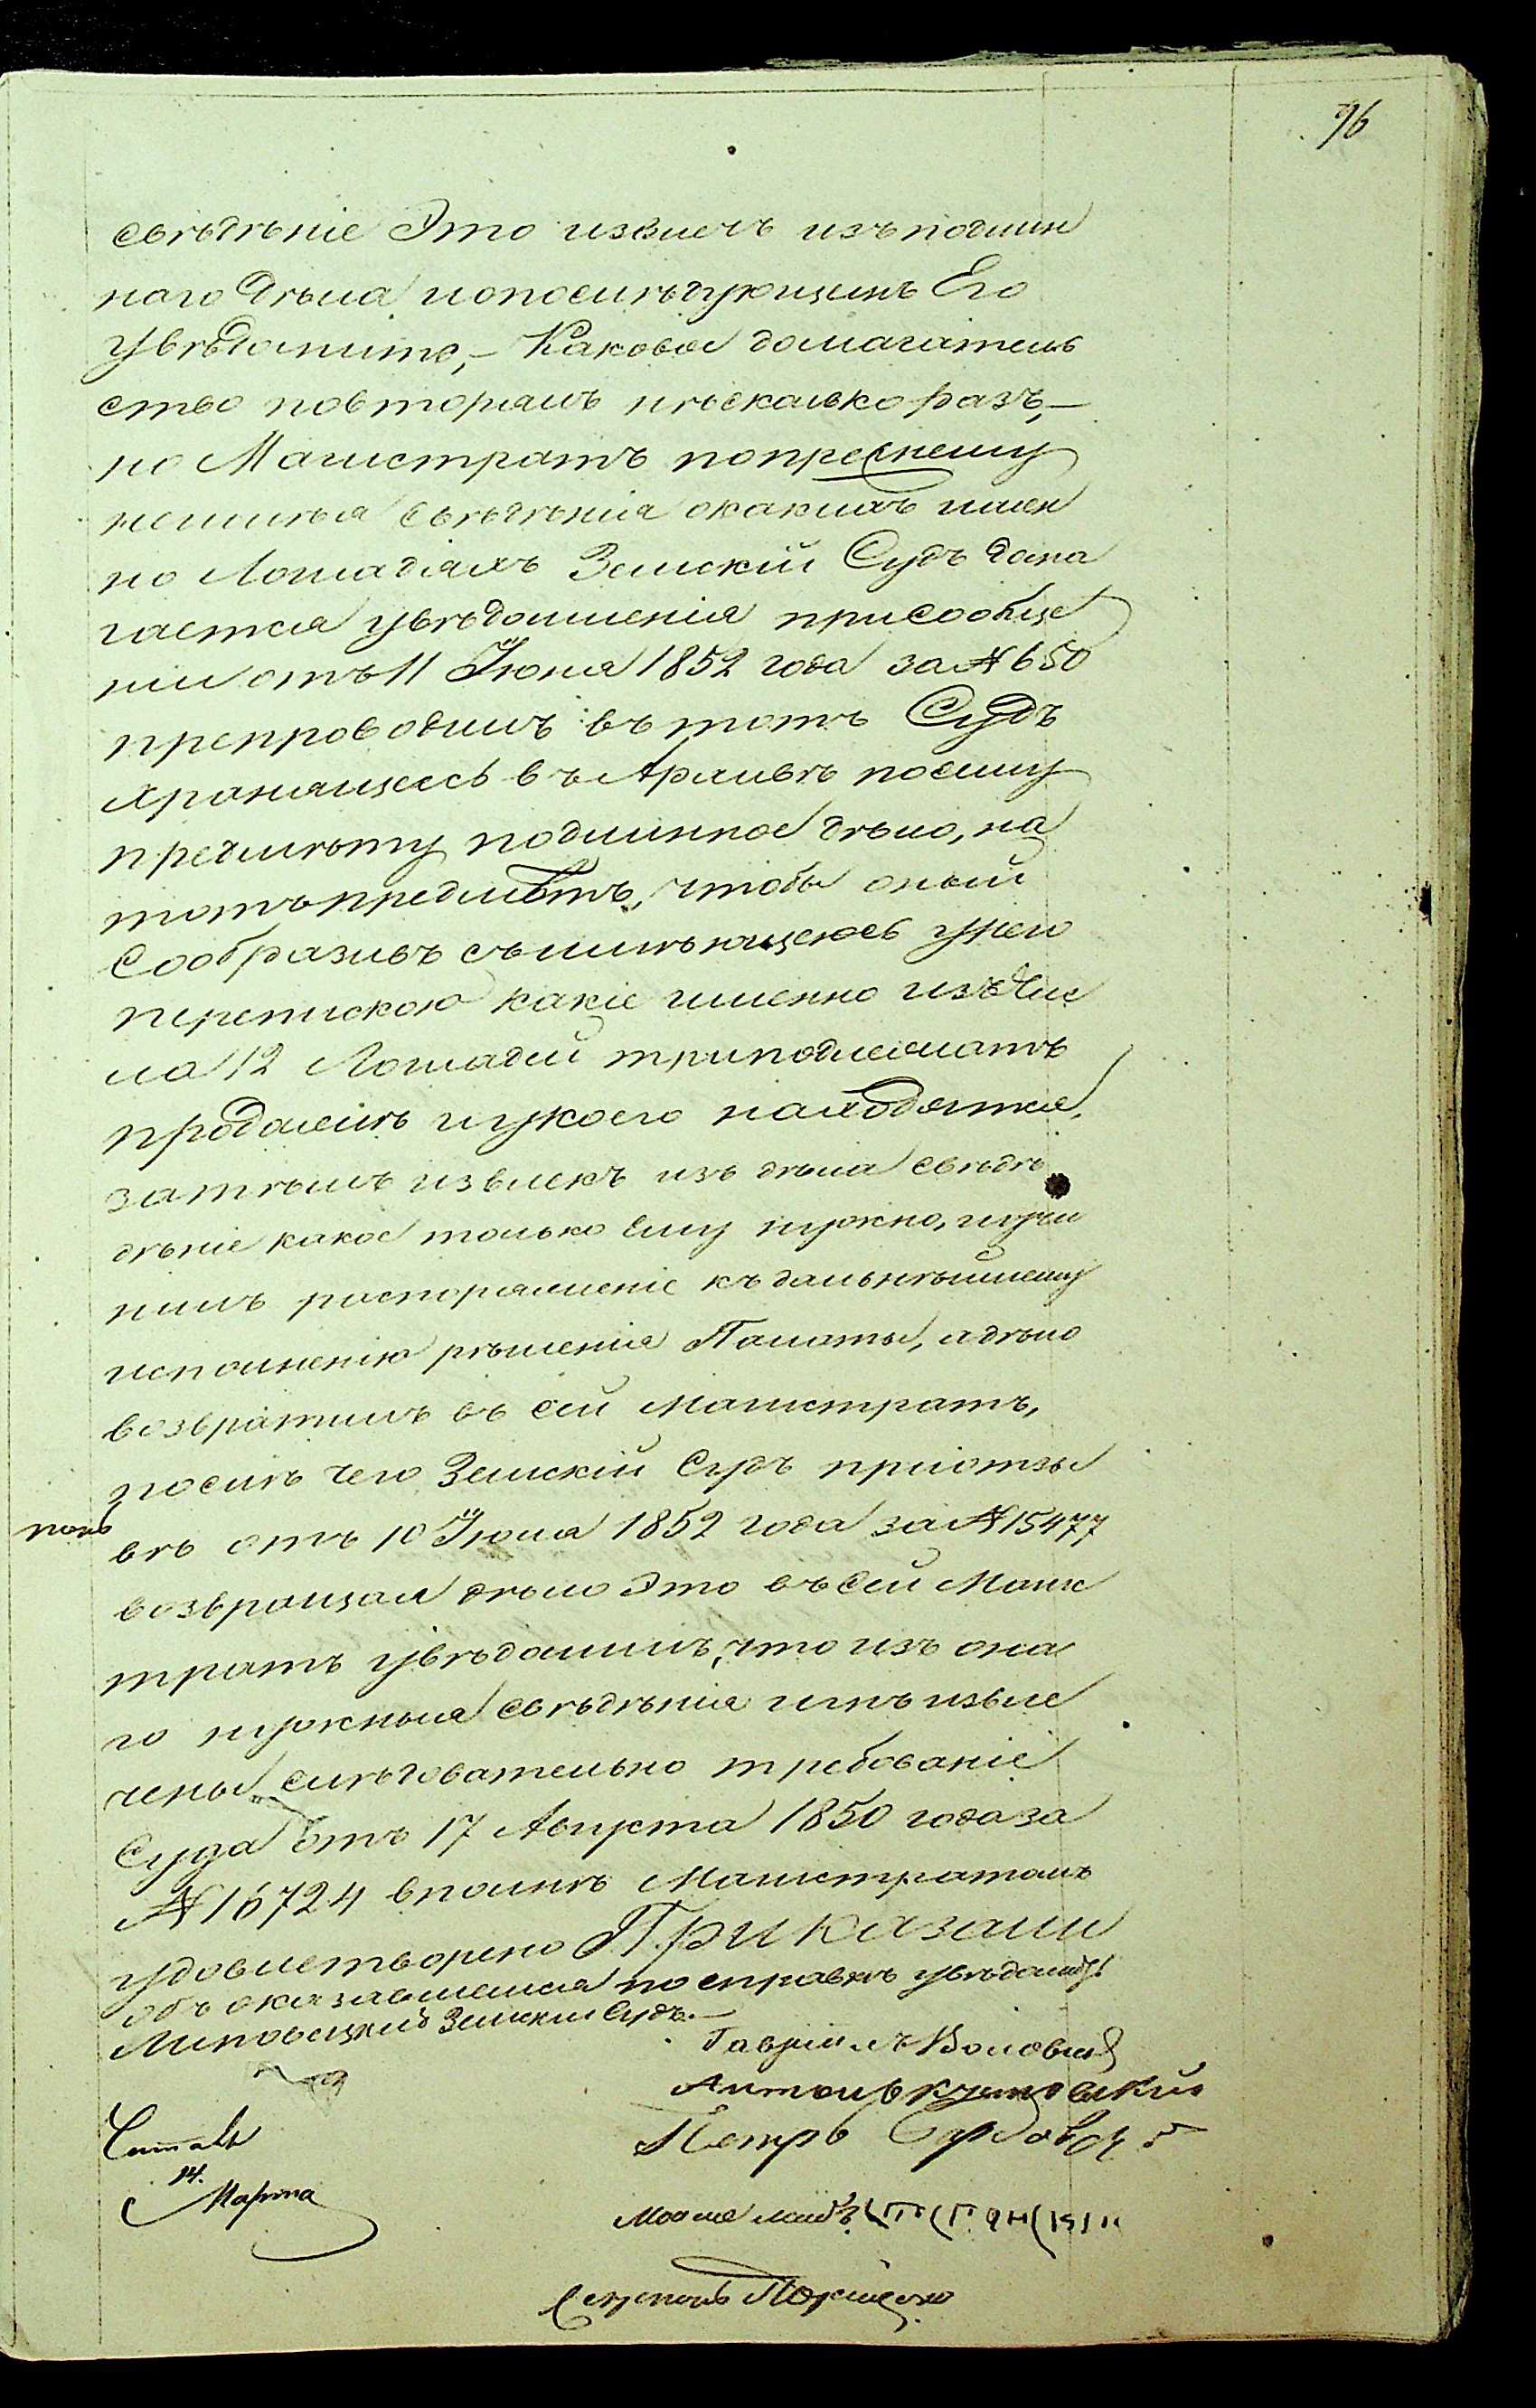 96
свѣдѣніе Это извлечь изъ подлин
наго Дѣла и о послѣдующемъ Его
Увѣдомить,– Каковое домагатель
ство повторялъ нѣсколько разъ,–
но Магистратъ попрежнему
неимѣя свѣдѣнія окакихъ имен
но Лошадяхъ Земскій Судъ дома
гается увѣдомленія присообще
ніи отъ 11 Іюня 1852 года за № 650
препроводилъ въ тотъ Судъ
хранящееся въ Архивѣ посему
предмѣту подлинное дѣло, на
тотъ предмѣтъ, чтобы оный
сообразивъ съ имѣющеюсь унего
перепискою какіе именно изъ Чис
ла 12 Лошадей три подлежатъ
продажѣ и укого находятся,
затѣмъ извлекъ изъ дѣла свѣдѣ
дѣніе какое только Ему нужно, и учи
нилъ распоряженіе къ дальнѣйшему
исполненію рѣшенія Палаты, а дѣло
возвратилъ въ сей Магистратъ,
послѣ чего Земскій Судъ при отзы
вѣ отъ 10 Іюля 1852 года за № 15477
возвращая дѣло Это въ Сей Магис
тратъ увѣдомилъ, что изъ она
го нужныя свѣдѣнія имъ извле
чены слѣдовательно требованіе
Суда отъ 17 Августа 1850 года за
№ 16724 вполнѣ Магистратомъ
удовлетворено Приказали
объ оказавшемся по справкѣ увѣдомить
Липовецкій Земскій Судъ.–
Гавріилъ
Антонъ
Петръ
Читалъ
14.
Марта
Секретарь